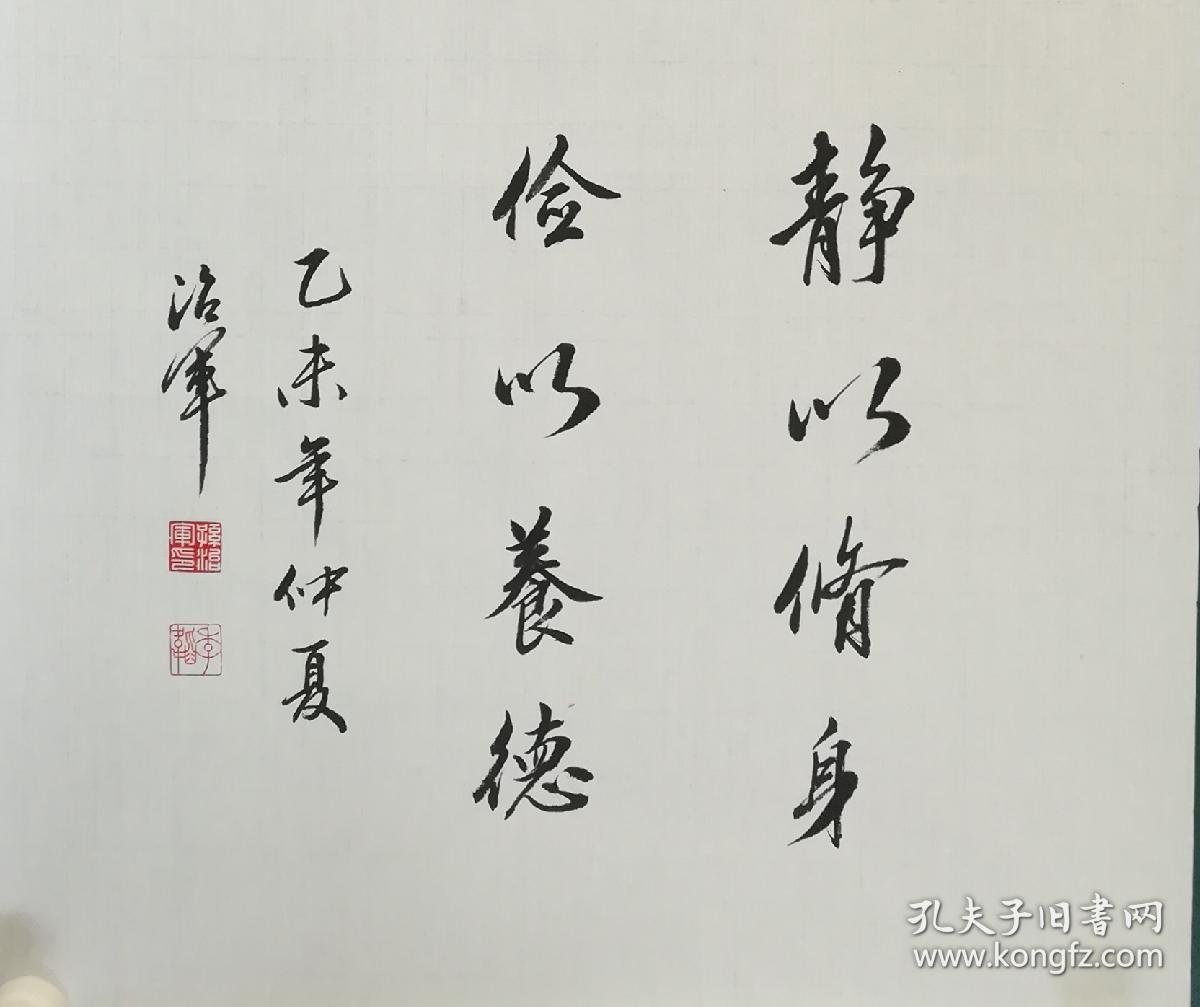 静以脩身
俭以養德
乙未年仲夏
治军
孫治軍印
孔夫子旧書网
www.kongfz.com